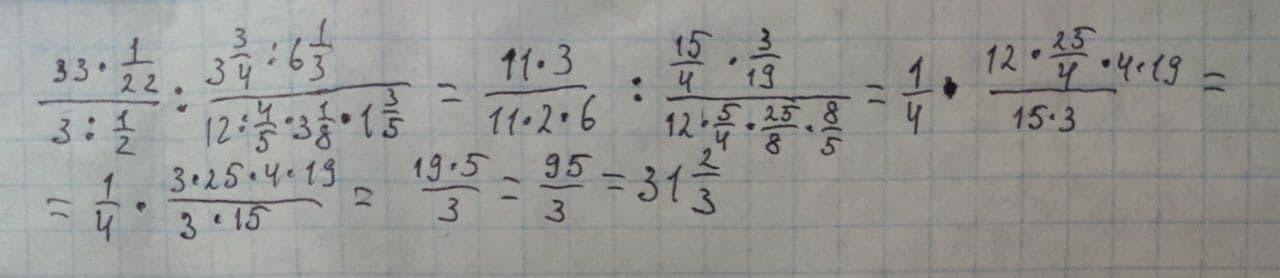 \frac{33 \cdot \frac{1}{22}}{3 : \frac{1}{2}} : \frac{3\frac{3}{4} : 6\frac{1}{3}}{12 : \frac{4}{5} \cdot 3\frac{1}{8} \cdot 1\frac{3}{5}} = \frac{11 \cdot 3}{11 \cdot 2 \cdot 6} : \frac{\frac{15}{4} \cdot \frac{3}{19}}{12 \cdot \frac{5}{4} \cdot \frac{25}{8} \cdot \frac{8}{5}} = \frac{1}{4} \cdot \frac{12 \cdot \frac{25}{4} \cdot 4 \cdot 19}{15 \cdot 3} =
= \frac{1}{4} \cdot \frac{3 \cdot 25 \cdot 4 \cdot 19}{3 \cdot 15} = \frac{19 \cdot 5}{3} = \frac{95}{3} = 31\frac{2}{3}